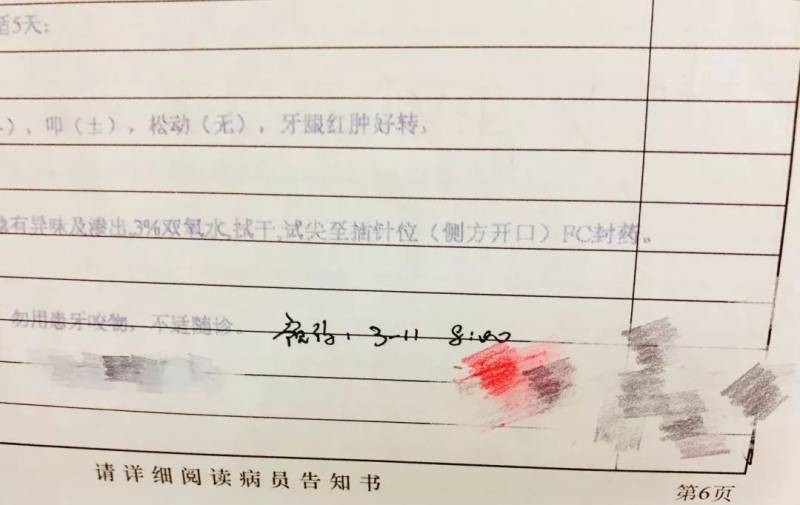 5天;
、叩（±），松动（无），牙龈红肿好转,
有异味及渗出,3%双氧水,拭干,试尖至插针位（侧方开口）FC封药。
勿用患牙咬物，不适随诊。 3-11 8:00
请详细阅读病员告知书
第6页